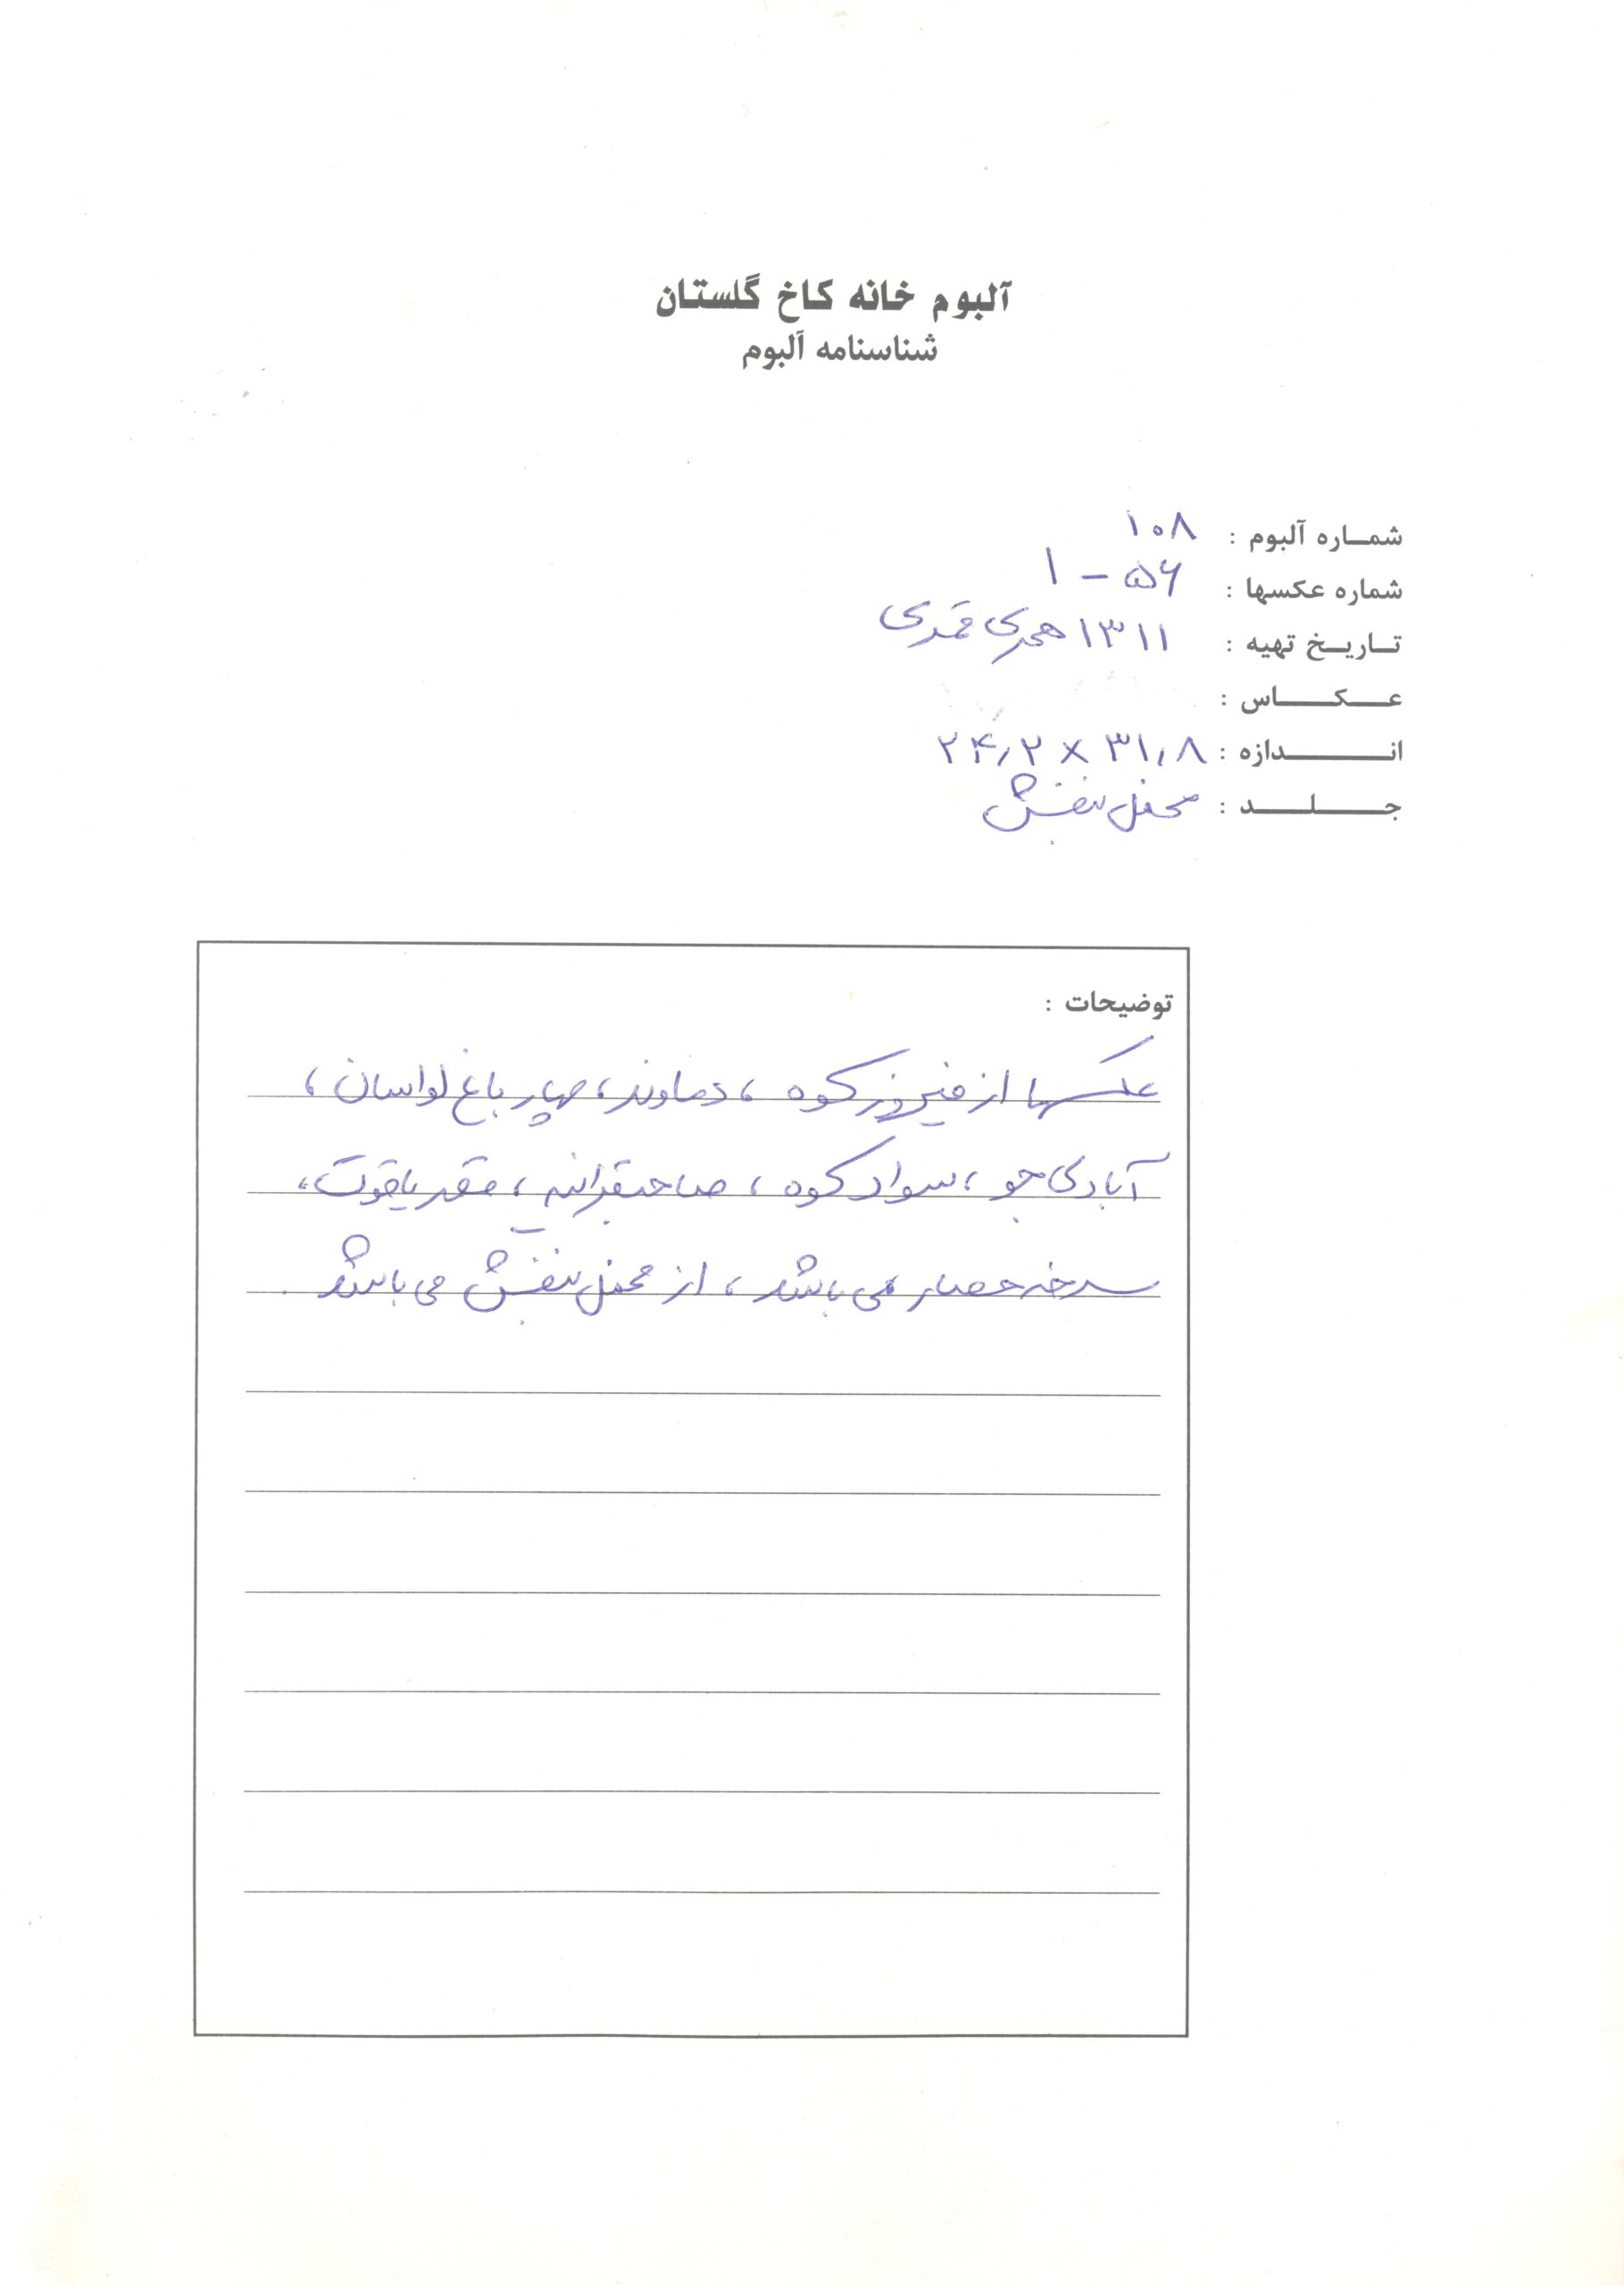 آلبوم خانه کاخ گلستان
شناسنامه آلبوم
شماره آلبوم : ۱۰۸
شماره عکسها : ۵۶ - ۱
تاریخ تهیه : ۱۳۱۱ هجری قمری
عکاس :
اندازه : ۳۱٫۸ × ۲۴٫۲
جلد : مخمل بنفش
توضیحات :
عکسها از فیروزکوه ، دماوند ، چهار باغ لواسان ،
آبادی جو ، سواد کوه ، صاحبقرانیه ، قصر یاقوت ،
سرخه حصار می باشد ، از مخمل بنفش می باشد .